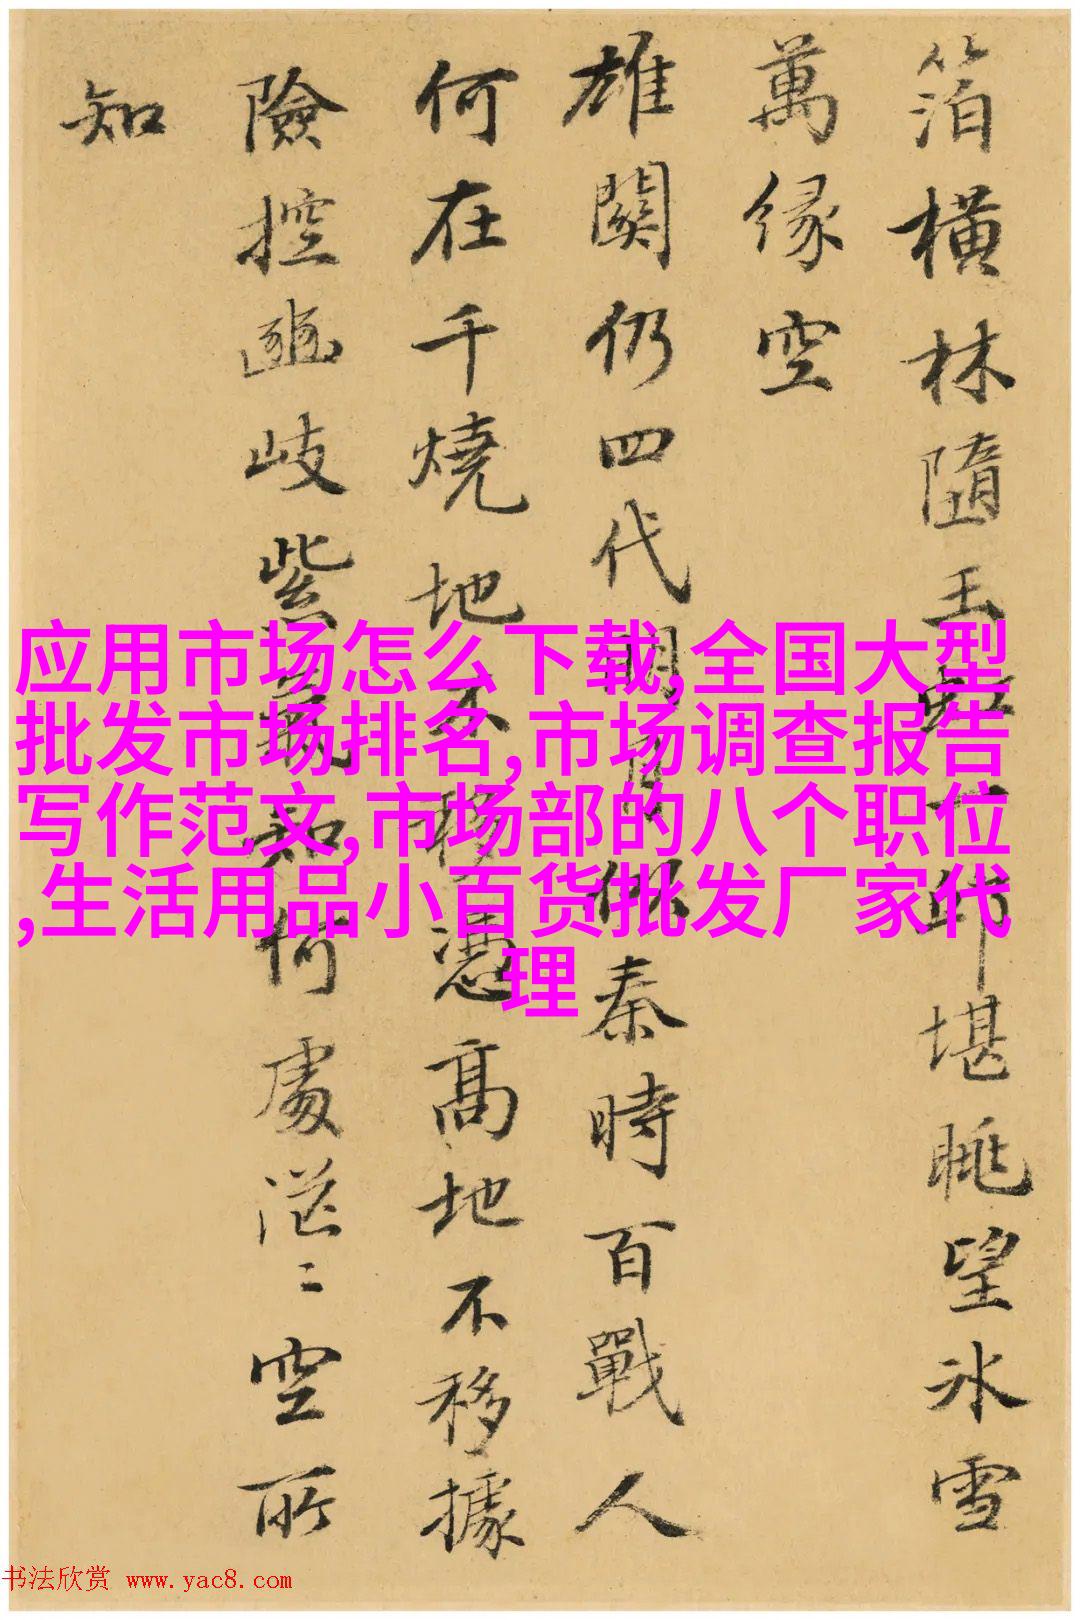 箔橫林隨玉虹一邨堪眺望氷雪
萬緣空
雄關仍四代明月似秦時百戰人
何在千燒地不移憑高地不移據
險控岐紫氣知何處茫〻空所
知
应用市场怎么下载,全国大型
批发市场排名,市场调查报告
写作范文,市场部的八个职位
,生活用品小百货批发厂家代
理
书法欣赏 www.yac8.com